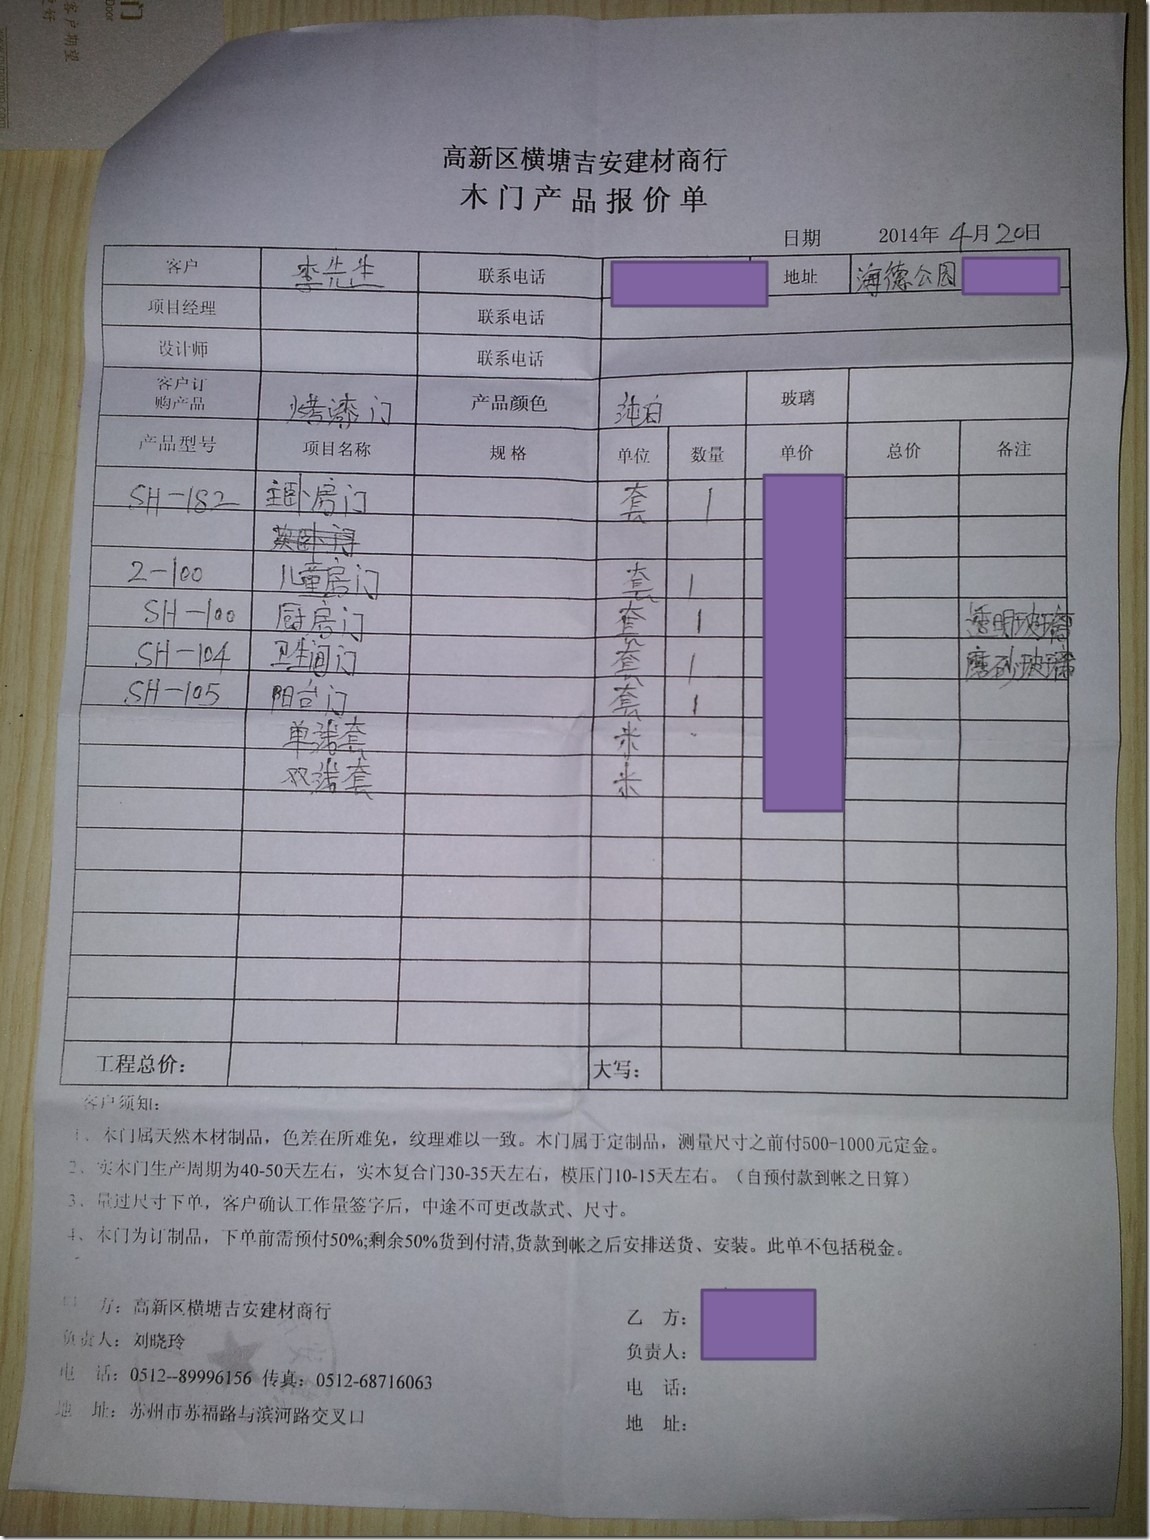 客户期望
高新区横塘吉安建材商行
木门产品报价单
日期 2014年 4月 20日
客户 李先生 联系电话 地址 海德公园
项目经理 联系电话
设计师 联系电话
客户订购产品 烤漆门 产品颜色 纯白 玻璃
产品型号 项目名称 规格 单位 数量 单价 总价 备注
SH-182 主卧房门 套 1
2-100 儿童房门 套 1
SH-100 厨房门 套 1 透明玻璃
SH-104 卫生间门 套 1 磨砂玻璃
SH-105 阳台门 套 1
单线套 米
双线套 米
工程总价： 大写：
客户须知：
1、木门属天然木材制品，色差在所难免，纹理难以一致。木门属于定制品，测量尺寸之前付500-1000元定金。
2、实木门生产周期为40-50天左右，实木复合门30-35天左右，模压门10-15天左右。（自预付款到帐之日算）
3、量过尺寸下单，客户确认工作量签字后，中途不可更改款式、尺寸。
4、木门为订制品，下单前需预付50%;剩余50%货到付清,货款到帐之后安排送货、安装。此单不包括税金。
方：高新区横塘吉安建材商行
负责人：刘晓玲
电 话：0512--89996156 传真：0512-68716063
地 址：苏州市苏福路与滨河路交叉口
乙 方：
负责人：
电 话：
地 址：